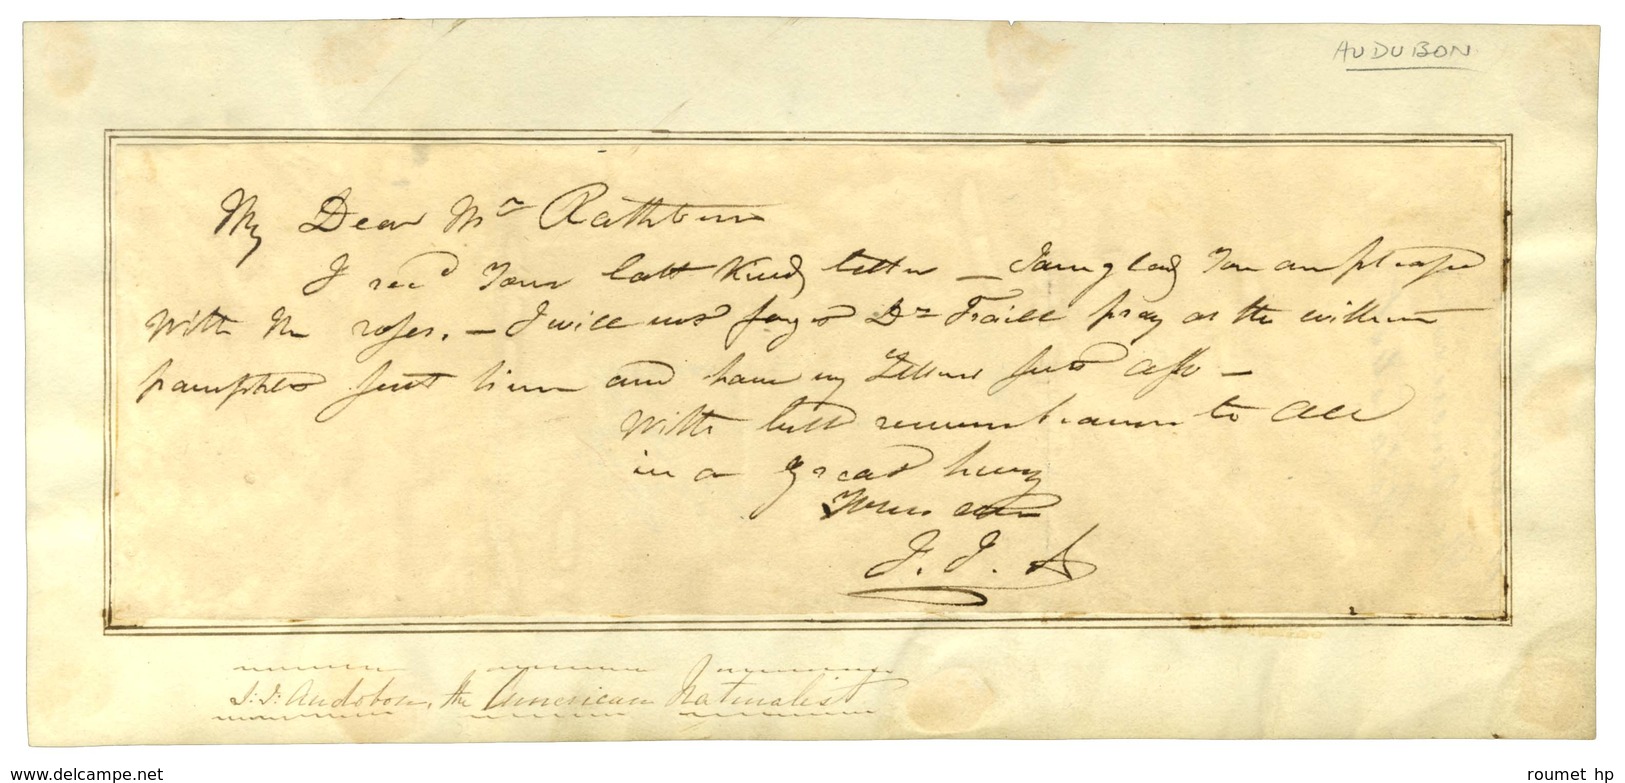 AUDUBON
My Dear Mr Rathbone
I recd Your last Kind letter — I am glad You are pleased
With the roses. — I will not forget Dr Traill pray as the
pamphlet sent him and have my Letters sent also —
With best remembrances to All
in a great hurry
Yours ever
J. J. A
J: J: Audobon, the American Naturalist
www.delcampe.net
roumet hp